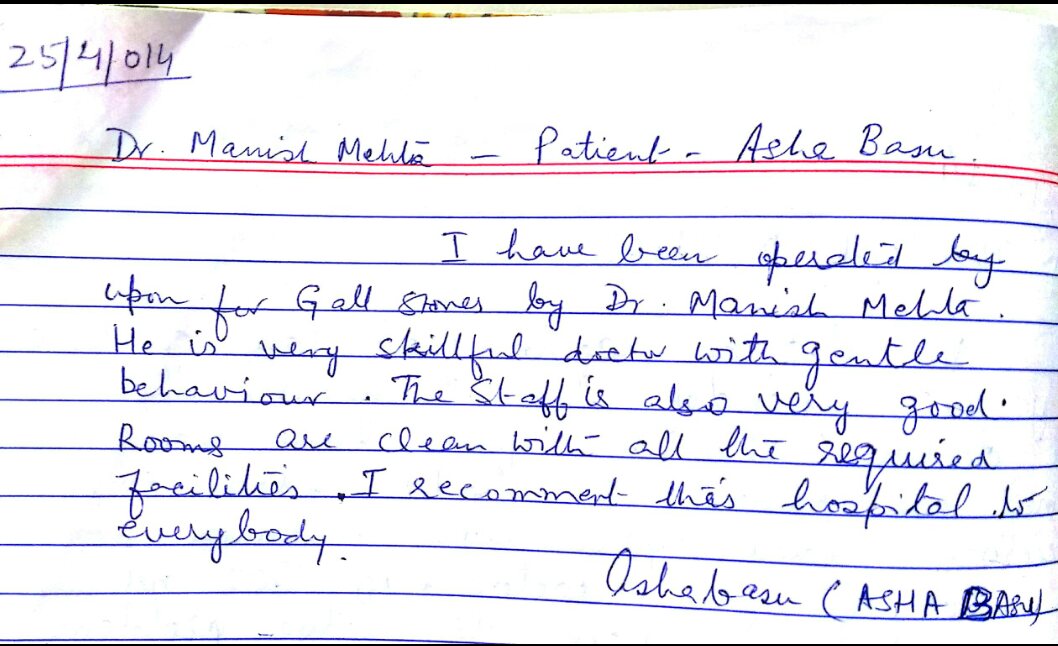 25/4/014
Dr. Manish Mehta - Patient - Asha Basu.
I have been operated by
upon for Gall stones by Dr. Manish Mehta.
He is very skillful doctor with gentle
behaviour. The Staff is also very good.
Rooms are clean with all the required
facilities. I recomment this hospital to
everybody.
Ashabasu (ASHA BASU)